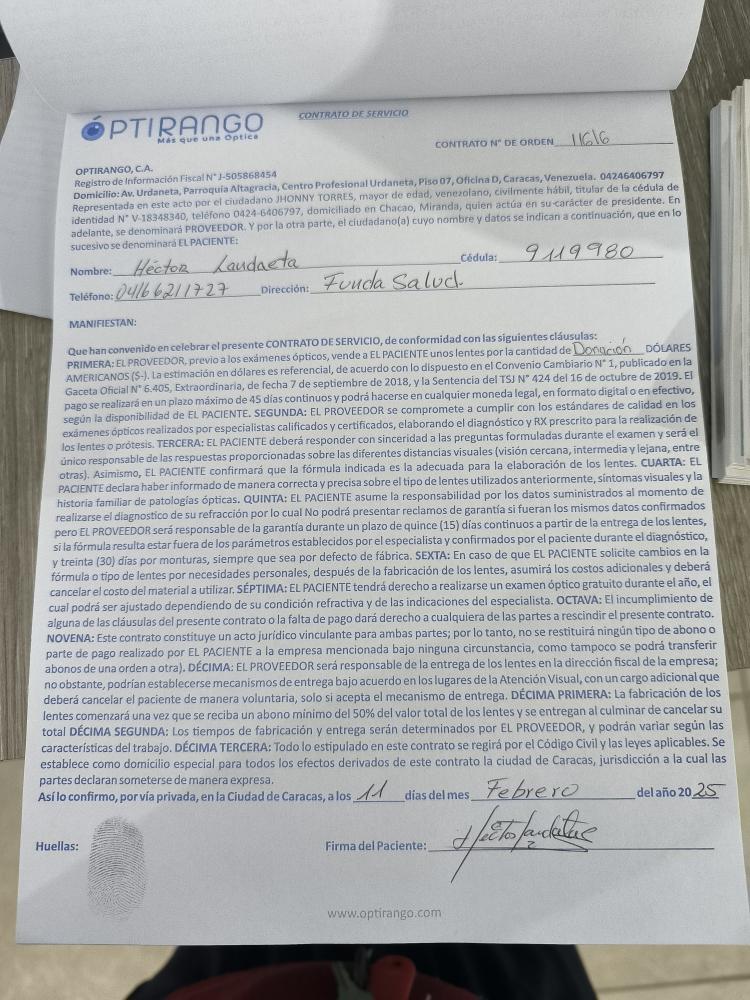 ÓPTIRANGO
Más que una Óptica
CONTRATO DE SERVICIO
CONTRATO N° DE ORDEN 11616
OPTIRANGO, C.A.
Registro de Información Fiscal N° J-505868454
Domicilio: Av. Urdaneta, Parroquia Altagracia, Centro Profesional Urdaneta, Piso 07, Oficina D, Caracas, Venezuela. 04246406797
Representada en este acto por el ciudadano JHONNY TORRES, mayor de edad, venezolano, civilmente hábil, titular de la cédula de
identidad N° V-18348340, teléfono 0424-6406797, domiciliado en Chacao, Miranda, quien actúa en su carácter de presidente. En
adelante, se denominará PROVEEDOR. Y por la otra parte, el ciudadano(a) cuyo nombre y datos se indican a continuación, que en lo
sucesivo se denominará EL PACIENTE:
Nombre: Héctor Landaeta Cédula: 9119980
Teléfono: 04166211727 Dirección: Funda Salud.
MANIFIESTAN:
Que han convenido en celebrar el presente CONTRATO DE SERVICIO, de conformidad con las siguientes cláusulas:
PRIMERA: EL PROVEEDOR, previo a los exámenes ópticos, vende a EL PACIENTE unos lentes por la cantidad de Donación DÓLARES
AMERICANOS ($-). La estimación en dólares es referencial, de acuerdo con lo dispuesto en el Convenio Cambiario N° 1, publicado en la
Gaceta Oficial N° 6.405, Extraordinaria, de fecha 7 de septiembre de 2018, y la Sentencia del TSJ N° 424 del 16 de octubre de 2019. El
pago se realizará en un plazo máximo de 45 días continuos y podrá hacerse en cualquier moneda legal, en formato digital o en efectivo,
según la disponibilidad de EL PACIENTE. SEGUNDA: EL PROVEEDOR se compromete a cumplir con los estándares de calidad en los
exámenes ópticos realizados por especialistas calificados y certificados, elaborando el diagnóstico y RX prescrito para la realización de
los lentes o prótesis. TERCERA: EL PACIENTE deberá responder con sinceridad a las preguntas formuladas durante el examen y será el
único responsable de las respuestas proporcionadas sobre las diferentes distancias visuales (visión cercana, intermedia y lejana, entre
otras). Asimismo, EL PACIENTE confirmará que la fórmula indicada es la adecuada para la elaboración de los lentes. CUARTA: EL
PACIENTE declara haber informado de manera correcta y precisa sobre el tipo de lentes utilizados anteriormente, síntomas visuales y la
historia familiar de patologías ópticas. QUINTA: EL PACIENTE asume la responsabilidad por los datos suministrados al momento de
realizarse el diagnostico de su refracción por lo cual No podrá presentar reclamos de garantía si fueran los mismos datos confirmados
pero EL PROVEEDOR será responsable de la garantía durante un plazo de quince (15) días continuos a partir de la entrega de los lentes,
si la fórmula resulta estar fuera de los parámetros establecidos por el especialista y confirmados por el paciente durante el diagnóstico,
y treinta (30) días por monturas, siempre que sea por defecto de fábrica. SEXTA: En caso de que EL PACIENTE solicite cambios en la
fórmula o tipo de lentes por necesidades personales, después de la fabricación de los lentes, asumirá los costos adicionales y deberá
cancelar el costo del material a utilizar. SÉPTIMA: EL PACIENTE tendrá derecho a realizarse un examen óptico gratuito durante el año, el
cual podrá ser ajustado dependiendo de su condición refractiva y de las indicaciones del especialista. OCTAVA: El incumplimiento de
alguna de las cláusulas del presente contrato o la falta de pago dará derecho a cualquiera de las partes a rescindir el presente contrato.
NOVENA: Este contrato constituye un acto jurídico vinculante para ambas partes; por lo tanto, no se restituirá ningún tipo de abono o
parte de pago realizado por EL PACIENTE a la empresa mencionada bajo ninguna circunstancia, como tampoco se podrá transferir
abonos de una orden a otra). DÉCIMA: EL PROVEEDOR será responsable de la entrega de los lentes en la dirección fiscal de la empresa;
no obstante, podrían establecerse mecanismos de entrega bajo acuerdo en los lugares de la Atención Visual, con un cargo adicional que
deberá cancelar el paciente de manera voluntaria, solo si acepta el mecanismo de entrega. DÉCIMA PRIMERA: La fabricación de los
lentes comenzará una vez que se reciba un abono mínimo del 50% del valor total de los lentes y se entregan al culminar de cancelar su
total DÉCIMA SEGUNDA: Los tiempos de fabricación y entrega serán determinados por EL PROVEEDOR, y podrán variar según las
características del trabajo. DÉCIMA TERCERA: Todo lo estipulado en este contrato se regirá por el Código Civil y las leyes aplicables. Se
establece como domicilio especial para todos los efectos derivados de este contrato la ciudad de Caracas, jurisdicción a la cual las
partes declaran someterse de manera expresa.
Así lo confirmo, por vía privada, en la Ciudad de Caracas, a los 11 días del mes Febrero del año 2025
Huellas: Firma del Paciente: Héctor Landaeta
www.optirango.com